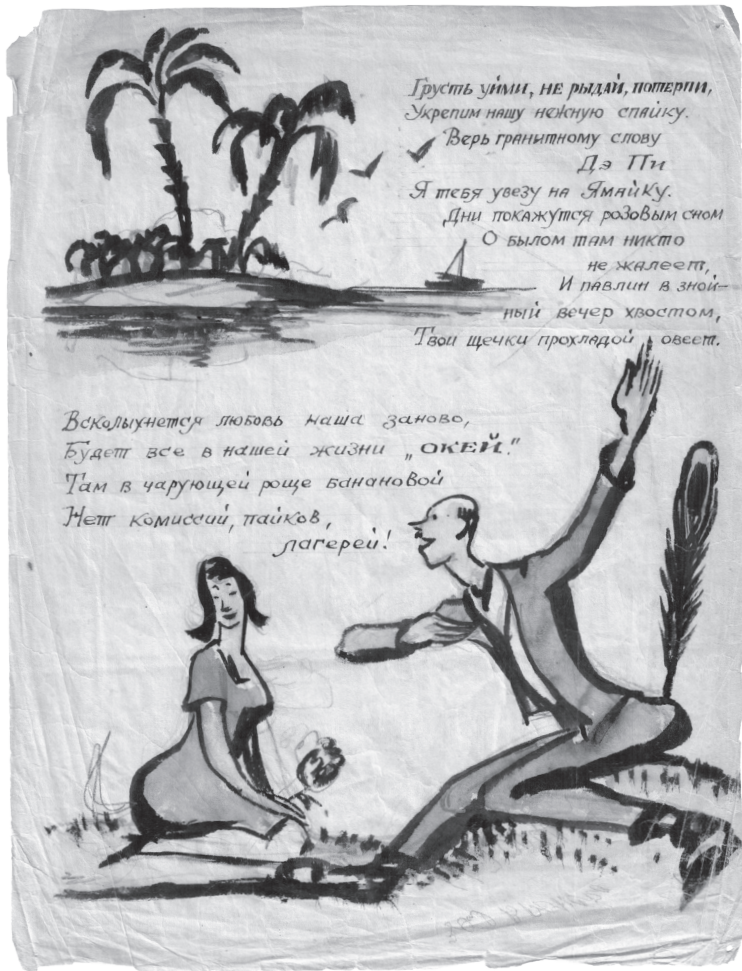 Грусть уйми, не рыдай, потерпи,
Укрепим нашу нежную спайку.
Верь гранитному слову
Дэ Пи
Я тебя увезу на Ямайку.
Дни покажутся розовым сном
О былом там никто
не жалеет,
И павлин в зной-
ный вечер хвостом,
Твои щечки прохладой овеет.
Всколыхнется любовь наша заново,
Будет все в нашей жизни „ОКЕЙ."
Там в чарующей роще банановой
Нет комиссий, пайков,
лагерей!